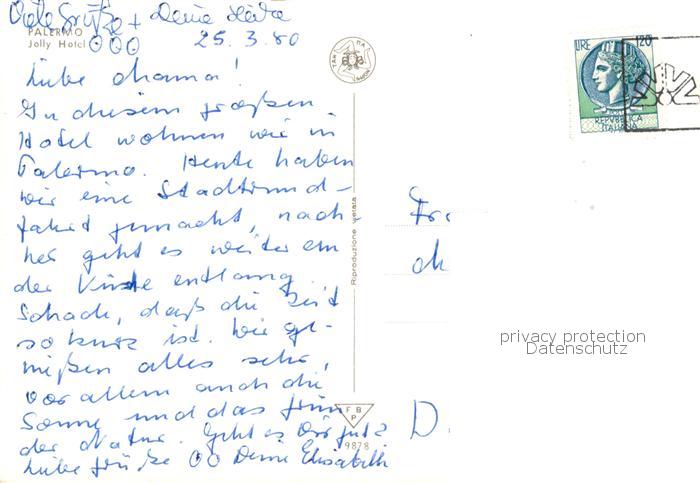 Viele Grüße + Deine Herta
PALERMO
Jolly Hotel OOO
25.3.80
Liebe Mama!
In diesem großen
Hotel wohnen wir in
Palermo. Heute haben
wir eine Stadtrund-
fahrt gemacht, nach-
her geht es weiter an
der Küste entlang.
Schade, daß die Zeit
so kurz ist. Wir ge-
nießen alles sehr,
vor allem auch die
Sonne und das Grün
der Natur. Geht es Dir gut?
Liebe Grüße OO Deine Elisabeth
Riproduzione vietata
F B
P
9878
LIRE 120
REPVBBLICA
ITALIANA
Fr
D
privacy protection
Datenschutz